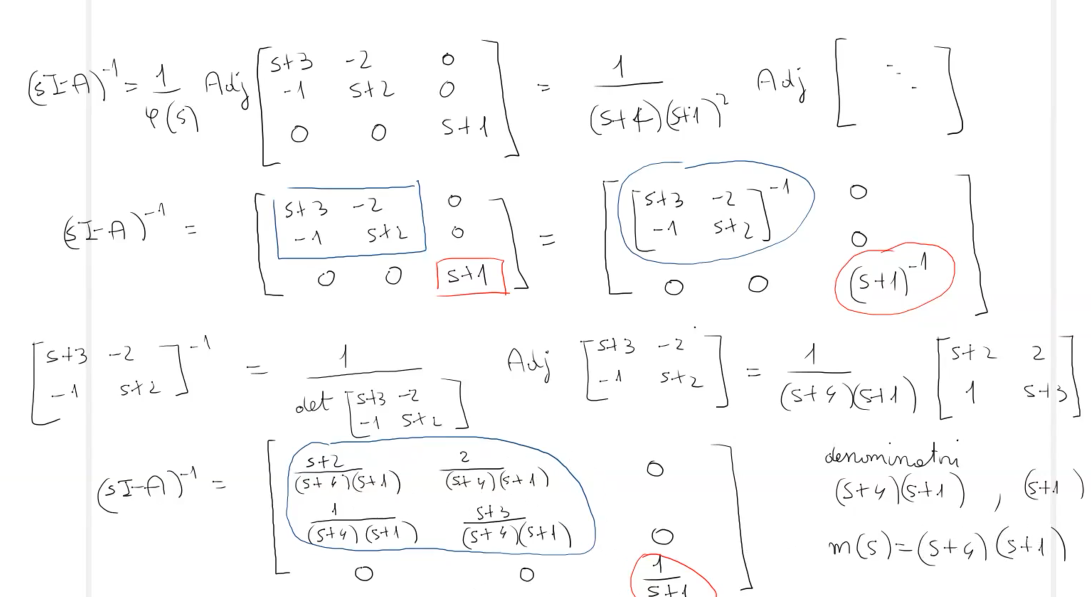 (sI-A)⁻¹ = 1/φ(s) Adj [s+3 -2 0; -1 s+2 0; 0 0 s+1] = 1/((s+4)(s+1)²) Adj [ ⋱ ]
(sI-A)⁻¹ = [s+3 -2 0; -1 s+2 0; 0 0 s+1] = [[s+3 -2; -1 s+2]⁻¹ 0; 0; 0 0 (s+1)⁻¹]
[s+3 -2; -1 s+2]⁻¹ = 1/(det [s+3 -2; -1 s+2]) Adj [s+3 -2; -1 s+2] = 1/((s+4)(s+1)) [s+2 2; 1 s+3]
(sI-A)⁻¹ = [(s+2)/((s+4)(s+1)) 2/((s+4)(s+1)) 0; 1/((s+4)(s+1)) (s+3)/((s+4)(s+1)) 0; 0 0 1/(s+1)]
denominatori
(s+4)(s+1) , (s+1)
m(s)=(s+4)(s+1)